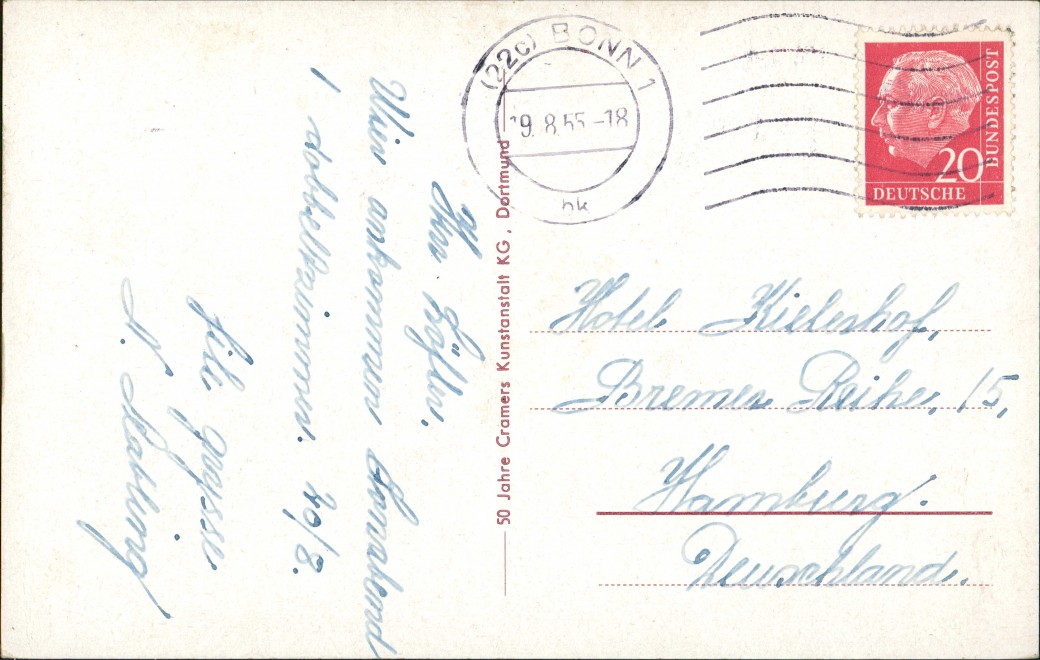 (22c) BONN 1
19.8.55-18
hk
DEUTSCHE
BUNDESPOST
20
50 Jahre Cramers Kunstanstalt KG, Dortmund
Hotel Kielerhof,
Bremer Reihe, 15,
Hamburg.
Deuschland.
Herr
ankommen Sonnabend
1 dobbeltzimmer. 20/8.
grüsse